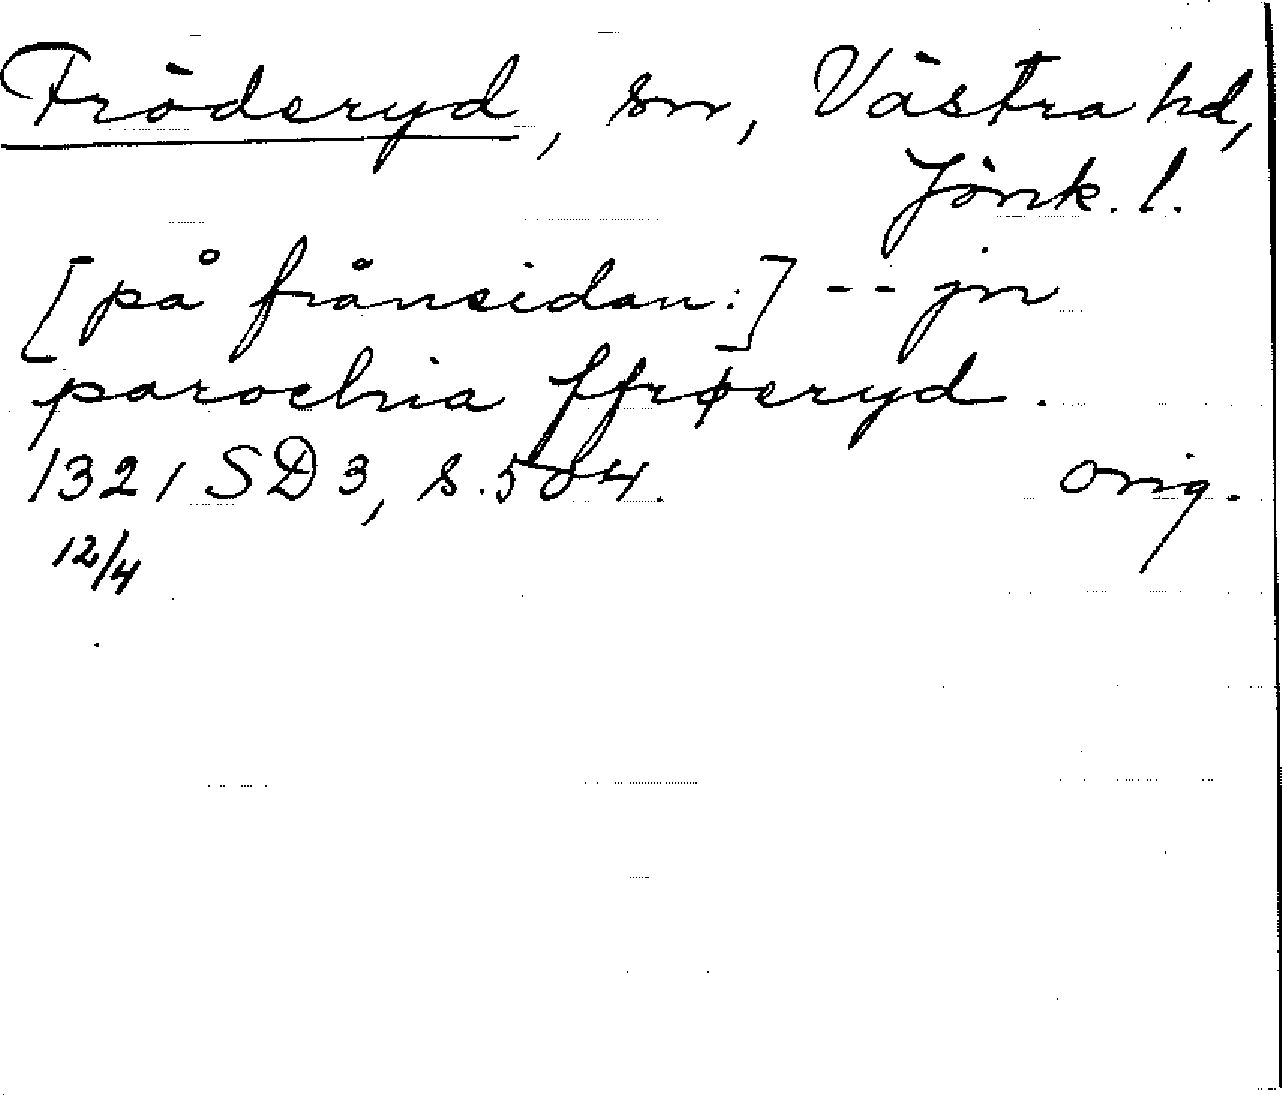 Fröderyd, sn, Västra hd,
Jönk. l.
[på frånsidan:] -- jn
parochia ffrøeryd.
1321 SD 3, s. 504. orig.
12/4